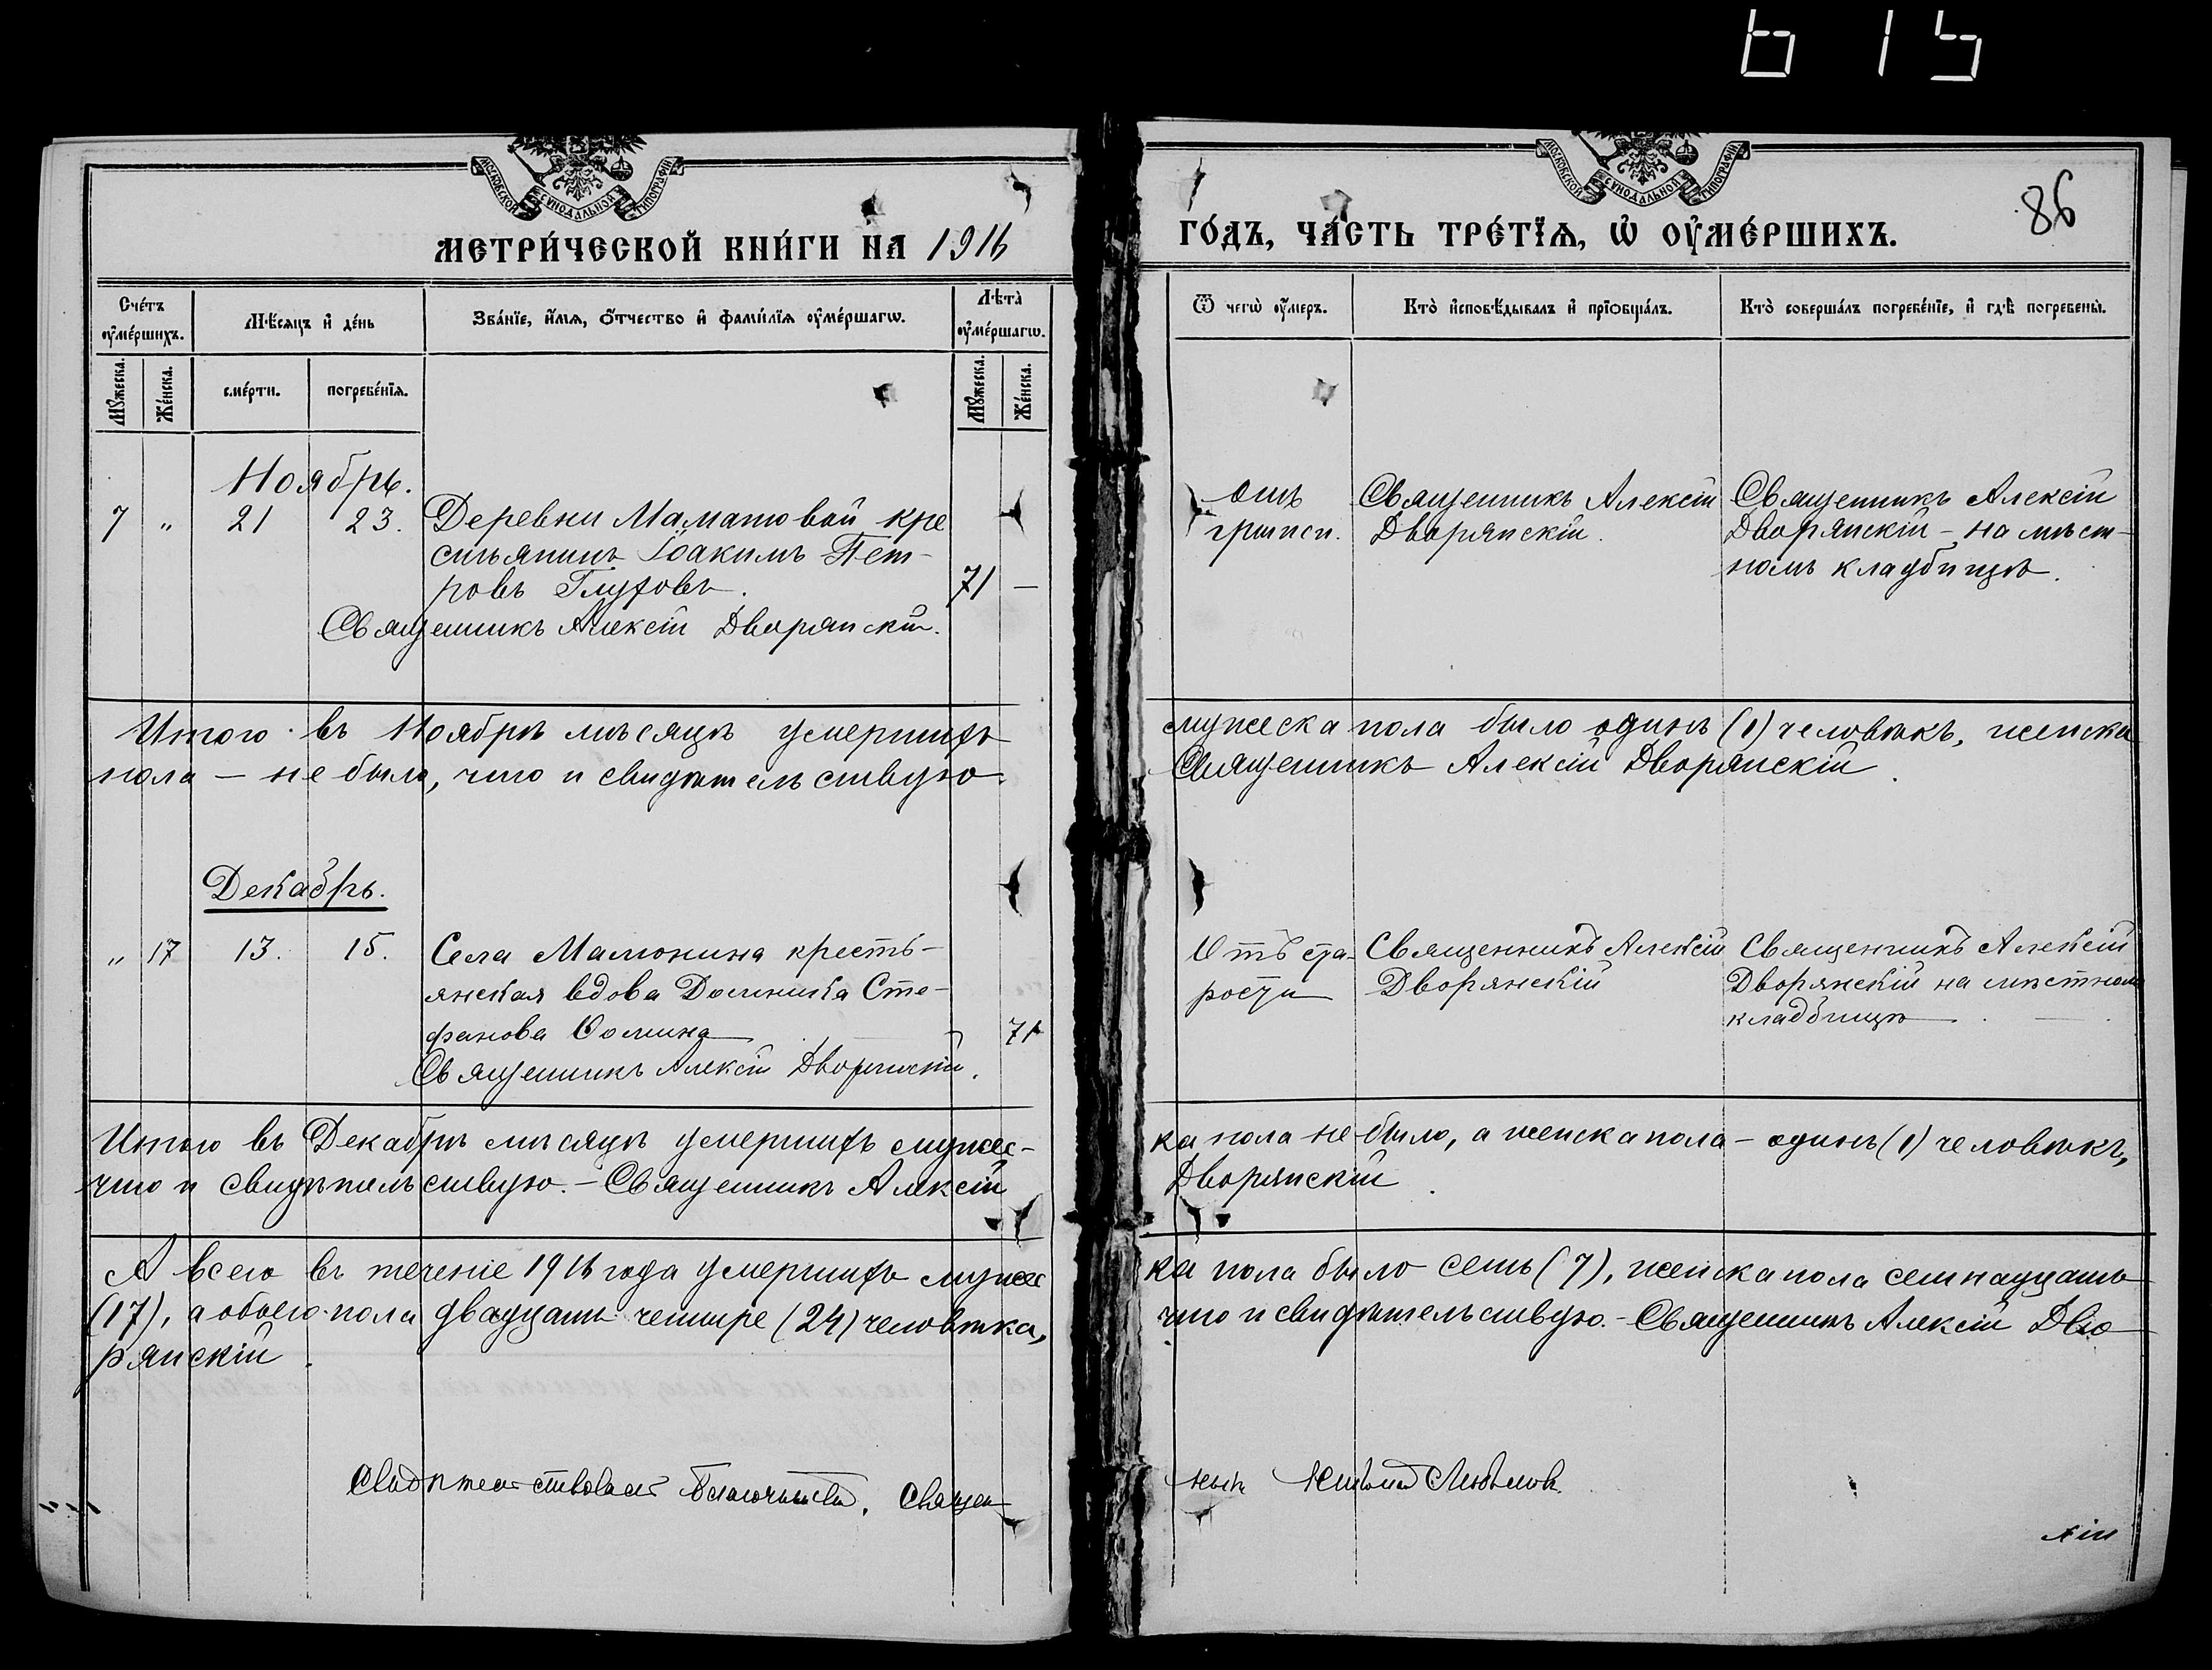 615
МОСКОВСКОЙ СѴНОДАЛЬНОЙ ТИПОГРАФІИ
МОСКОВСКОЙ СѴНОДАЛЬНОЙ ТИПОГРАФІИ
МЕТРИ́ЧЕСКОЙ КНИ́ГИ НА 1916
ГО́ДЪ, ЧА́СТЬ ТРЕ́ТЇѦ, Ѡ҆ ОУ҆МЕ́РШИХЪ.
86
Сче́тъ оу҆ме́ршихъ.
Мѣ́сяцъ и҆ де́нь
Зва́нїе, и҆́мѧ, ѻ҆́тчество и҆ фами́лїѧ оу҆ме́ршагѡ.
Лѣ́та оу҆ме́ршагѡ.
Ѿ чегѡ̀ оу҆́меръ.
Кто̀ и҆сповѣ́дывалъ и҆ прїѡбща́лъ.
Кто̀ соверша́лъ погребе́нїе, и҆ гдѣ̀ погребены̀.
Мꙋ́жеска.
Же́нска.
сме́рти.
погребе́нїѧ.
Мꙋ́жеска.
Же́нска.
Ноябрь.
7 " 21 23. Деревни Маматовой кре
стьянинъ Іоакимъ Пет-
ровъ Глуховъ. 71 —
Священникъ Алексій Дворянскій.
Отъ
гриппа.
Священникъ Алексій
Дворянскій.
Священникъ Алексій
Дворянскій – на мѣст-
номъ кладбищѣ.
Итого въ Ноябрѣ мѣсяцѣ умершихъ
мужеска пола было одинъ (1) человѣкъ, женска
пола — не было, что и свидѣтельствую.
Священникъ Алексій Дворянскій.
Декабрь.
" 17 13. 15. Села Мамонина кресть-
янская вдова Домника Сте-
фанова Фомина 71
Священникъ Алексій Дворянскій.
Отъ ста-
рости
Священникъ Алексій
Дворянскій
Священникъ Алексій
Дворянскій на мѣстномъ
кладбищѣ.
Итого въ Декабрѣ мѣсяцѣ умершихъ мужес-
ка пола не было, а женска пола – одинъ (1) человѣкъ,
что и свидѣтельствую. – Священникъ Алексій
Дворянскій.
А всего въ теченіе 1916 года умершихъ мужес
ка пола было семь (7), женска пола семнадцать
(17), а обоего пола двадцать четыре (24) человѣка,
что и свидѣтельствую. – Священникъ Алексій Дво
рянскій.
Свидѣтельствовалъ Благочинный, Священ
никъ